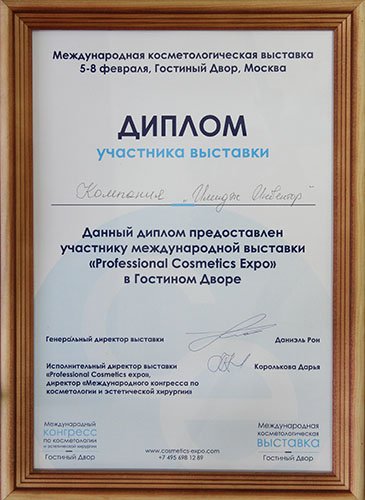 Международная косметологическая выставка
5-8 февраля, Гостиный Двор, Москва
ДИПЛОМ
участника выставки
Компания „Имидж Инвентор"
Данный диплом предоставлен
участнику международной выставки
«Professional Cosmetics Expo»
в Гостином Дворе
Генеральный директор выставки
Даниэль Рон
Исполнительный директор выставки
«Professional Cosmetics expo»,
директор «Международного конгресса по
косметологии и эстетической хирургии»
Королькова Дарья
Международный
КОНГРЕСС
по косметологии
и эстетической хирургии
Гостиный Двор
www.cosmetics-expo.com
+7 495 698 12 89
Международная
косметологическая
ВЫСТАВКА
Гостиный Двор